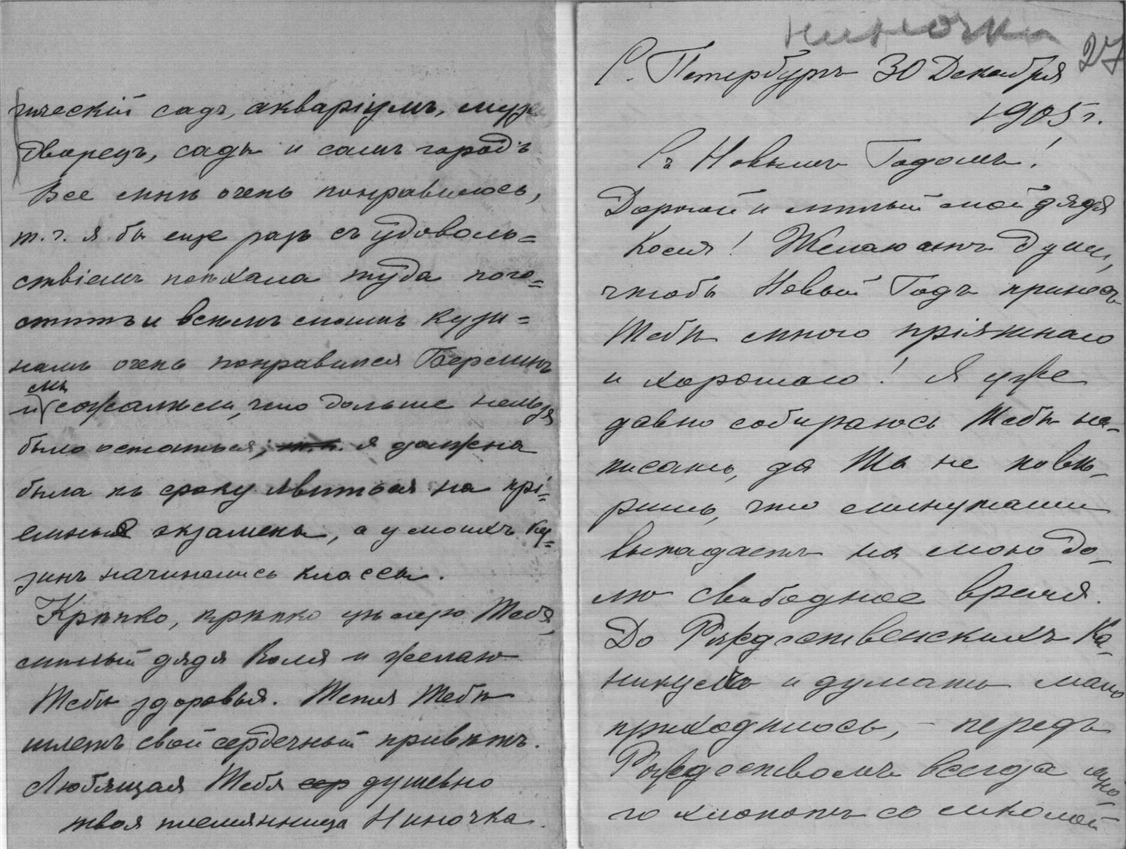 ическій садъ, акваріумъ, музе
дворецъ, сады и самъ городъ.
Все мнѣ очень понравилось,
т. ч. я бы еще разъ съ удоволь=
ствіемъ поѣхала туда пого=
стить и всѣмъ моимъ кузи=
намъ очень понравился Берлинъ
мы
и сожалѣли, что дольше нельзя
было остаться, т.к. я должна
была къ сроку явиться на прі=
емные экзамены, а у моихъ ку=
зинъ начинались классы.
Крѣпко, крѣпко цѣлую Тебя,
милый дядя Коля и желаю
Тебѣ здоровья. Тетя Тебѣ
шлетъ свой сердечный привѣтъ.
Любящая Тебя сер душевно
твоя племянница Ниночка.
Ниночки
27
С. Петербургъ 30 Декабря
1905 г.
Съ Новымъ Годомъ!
Дорогой и милый мой дядя
Коля! Желаю отъ души,
чтобы Новый Годъ принесъ
Тебѣ много пріятнаго
и хорошаго! Я уже
давно собираюсь Тебѣ на=
писать, да Ты не повѣ=
ришь, что минутами
выпадаетъ на мою до=
лю свободное время.
До Рождественскихъ Ка=
никулъ и думать мало
приходилось, – передъ
Рождествомъ всегда мно=
го хлопотъ со школой